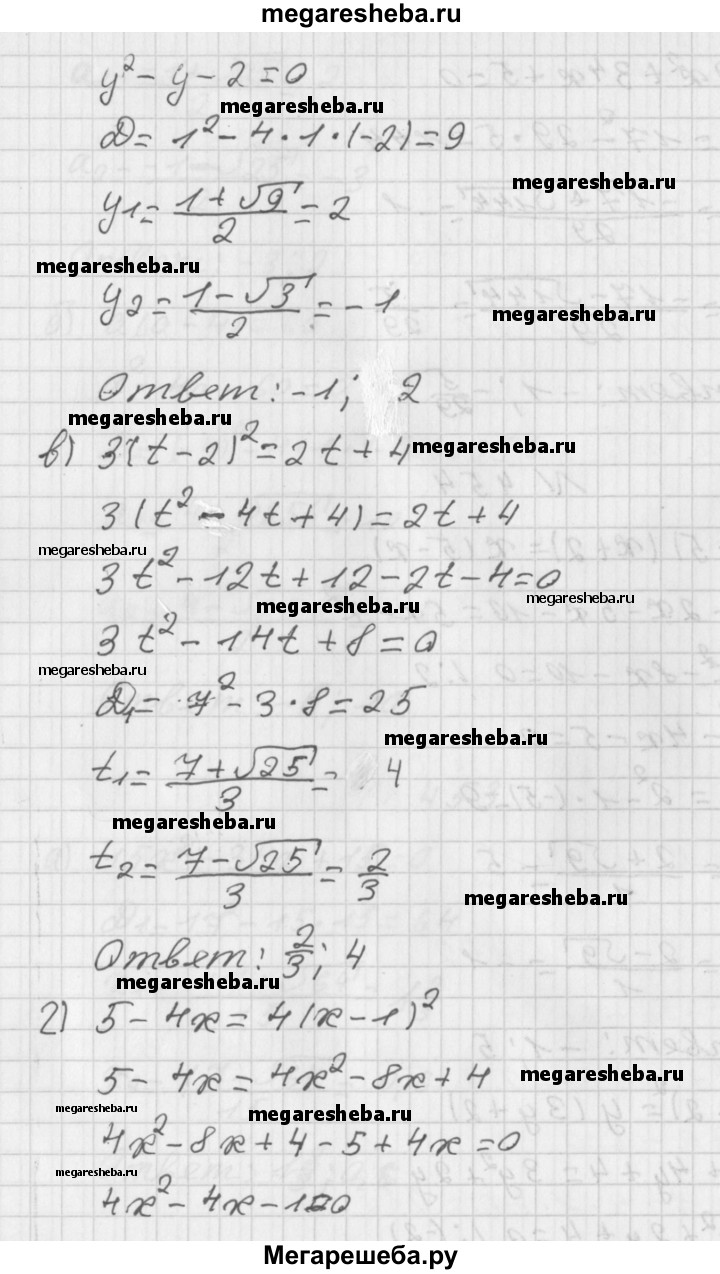 megaresheba.ru
y² - y - 2 = 0
megaresheba.ru
D = 1² - 4 · 1 · (-2) = 9
megaresheba.ru
y₁ = (1 + √9)/2 = 2
megaresheba.ru
y₂ = (1 - √3)/2 = -1
megaresheba.ru
Ответ: -1; 2
megaresheba.ru
в) 3(t - 2)² = 2t + 4
megaresheba.ru
3(t² - 4t + 4) = 2t + 4
megaresheba.ru
3t² - 12t + 12 - 2t - 4 = 0
megaresheba.ru
megaresheba.ru
3t² - 14t + 8 = 0
megaresheba.ru
D₁ = 7² - 3 · 8 = 25
megaresheba.ru
t₁ = (7 + √25)/3 = 4
megaresheba.ru
t₂ = (7 - √25)/3 = 2/3
megaresheba.ru
Ответ: 2/3; 4
megaresheba.ru
г) 5 - 4x = 4(x - 1)²
5 - 4x = 4x² - 8x + 4
megaresheba.ru
megaresheba.ru
megaresheba.ru
4x² - 8x + 4 - 5 + 4x = 0
megaresheba.ru
4x² - 4x - 1 = 0
Мегарешеба.ру